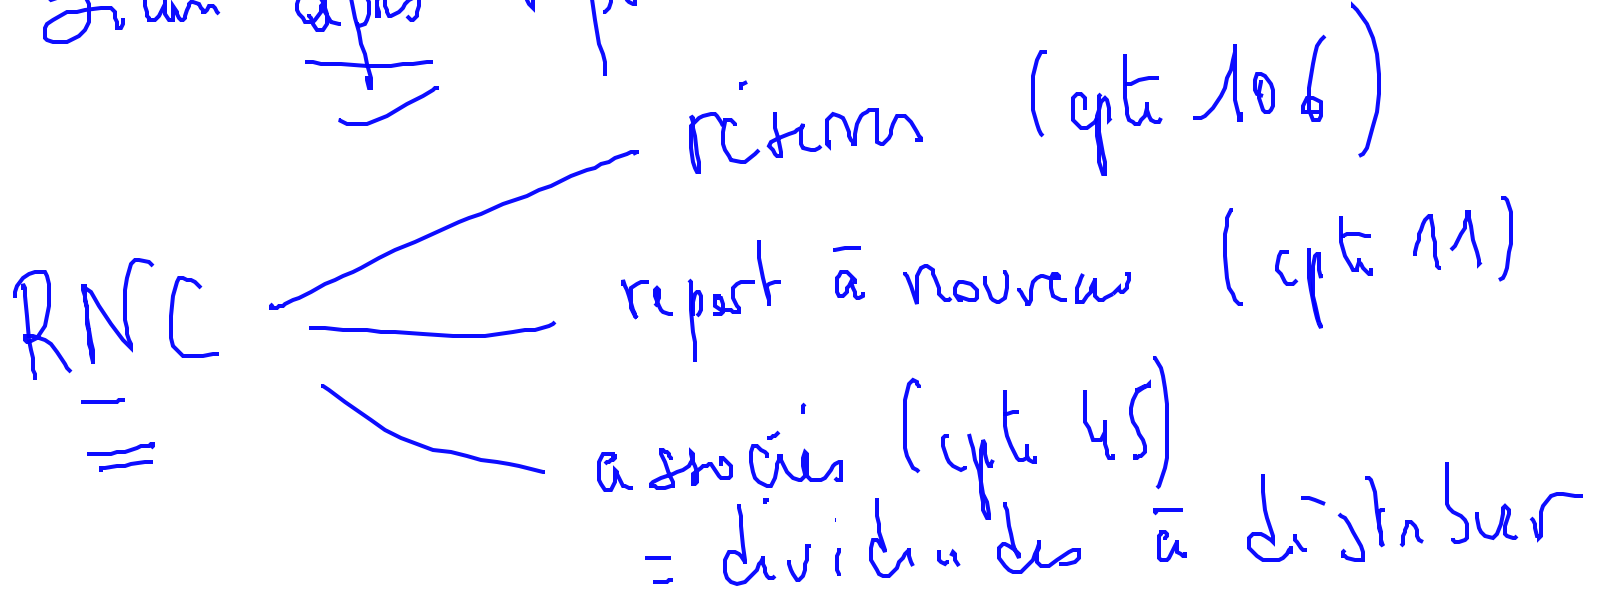 après
réserves (cpte 106)
RNC
report à nouveau (cpte 11)
associés (cpte 45)
= dividendes à distribuer